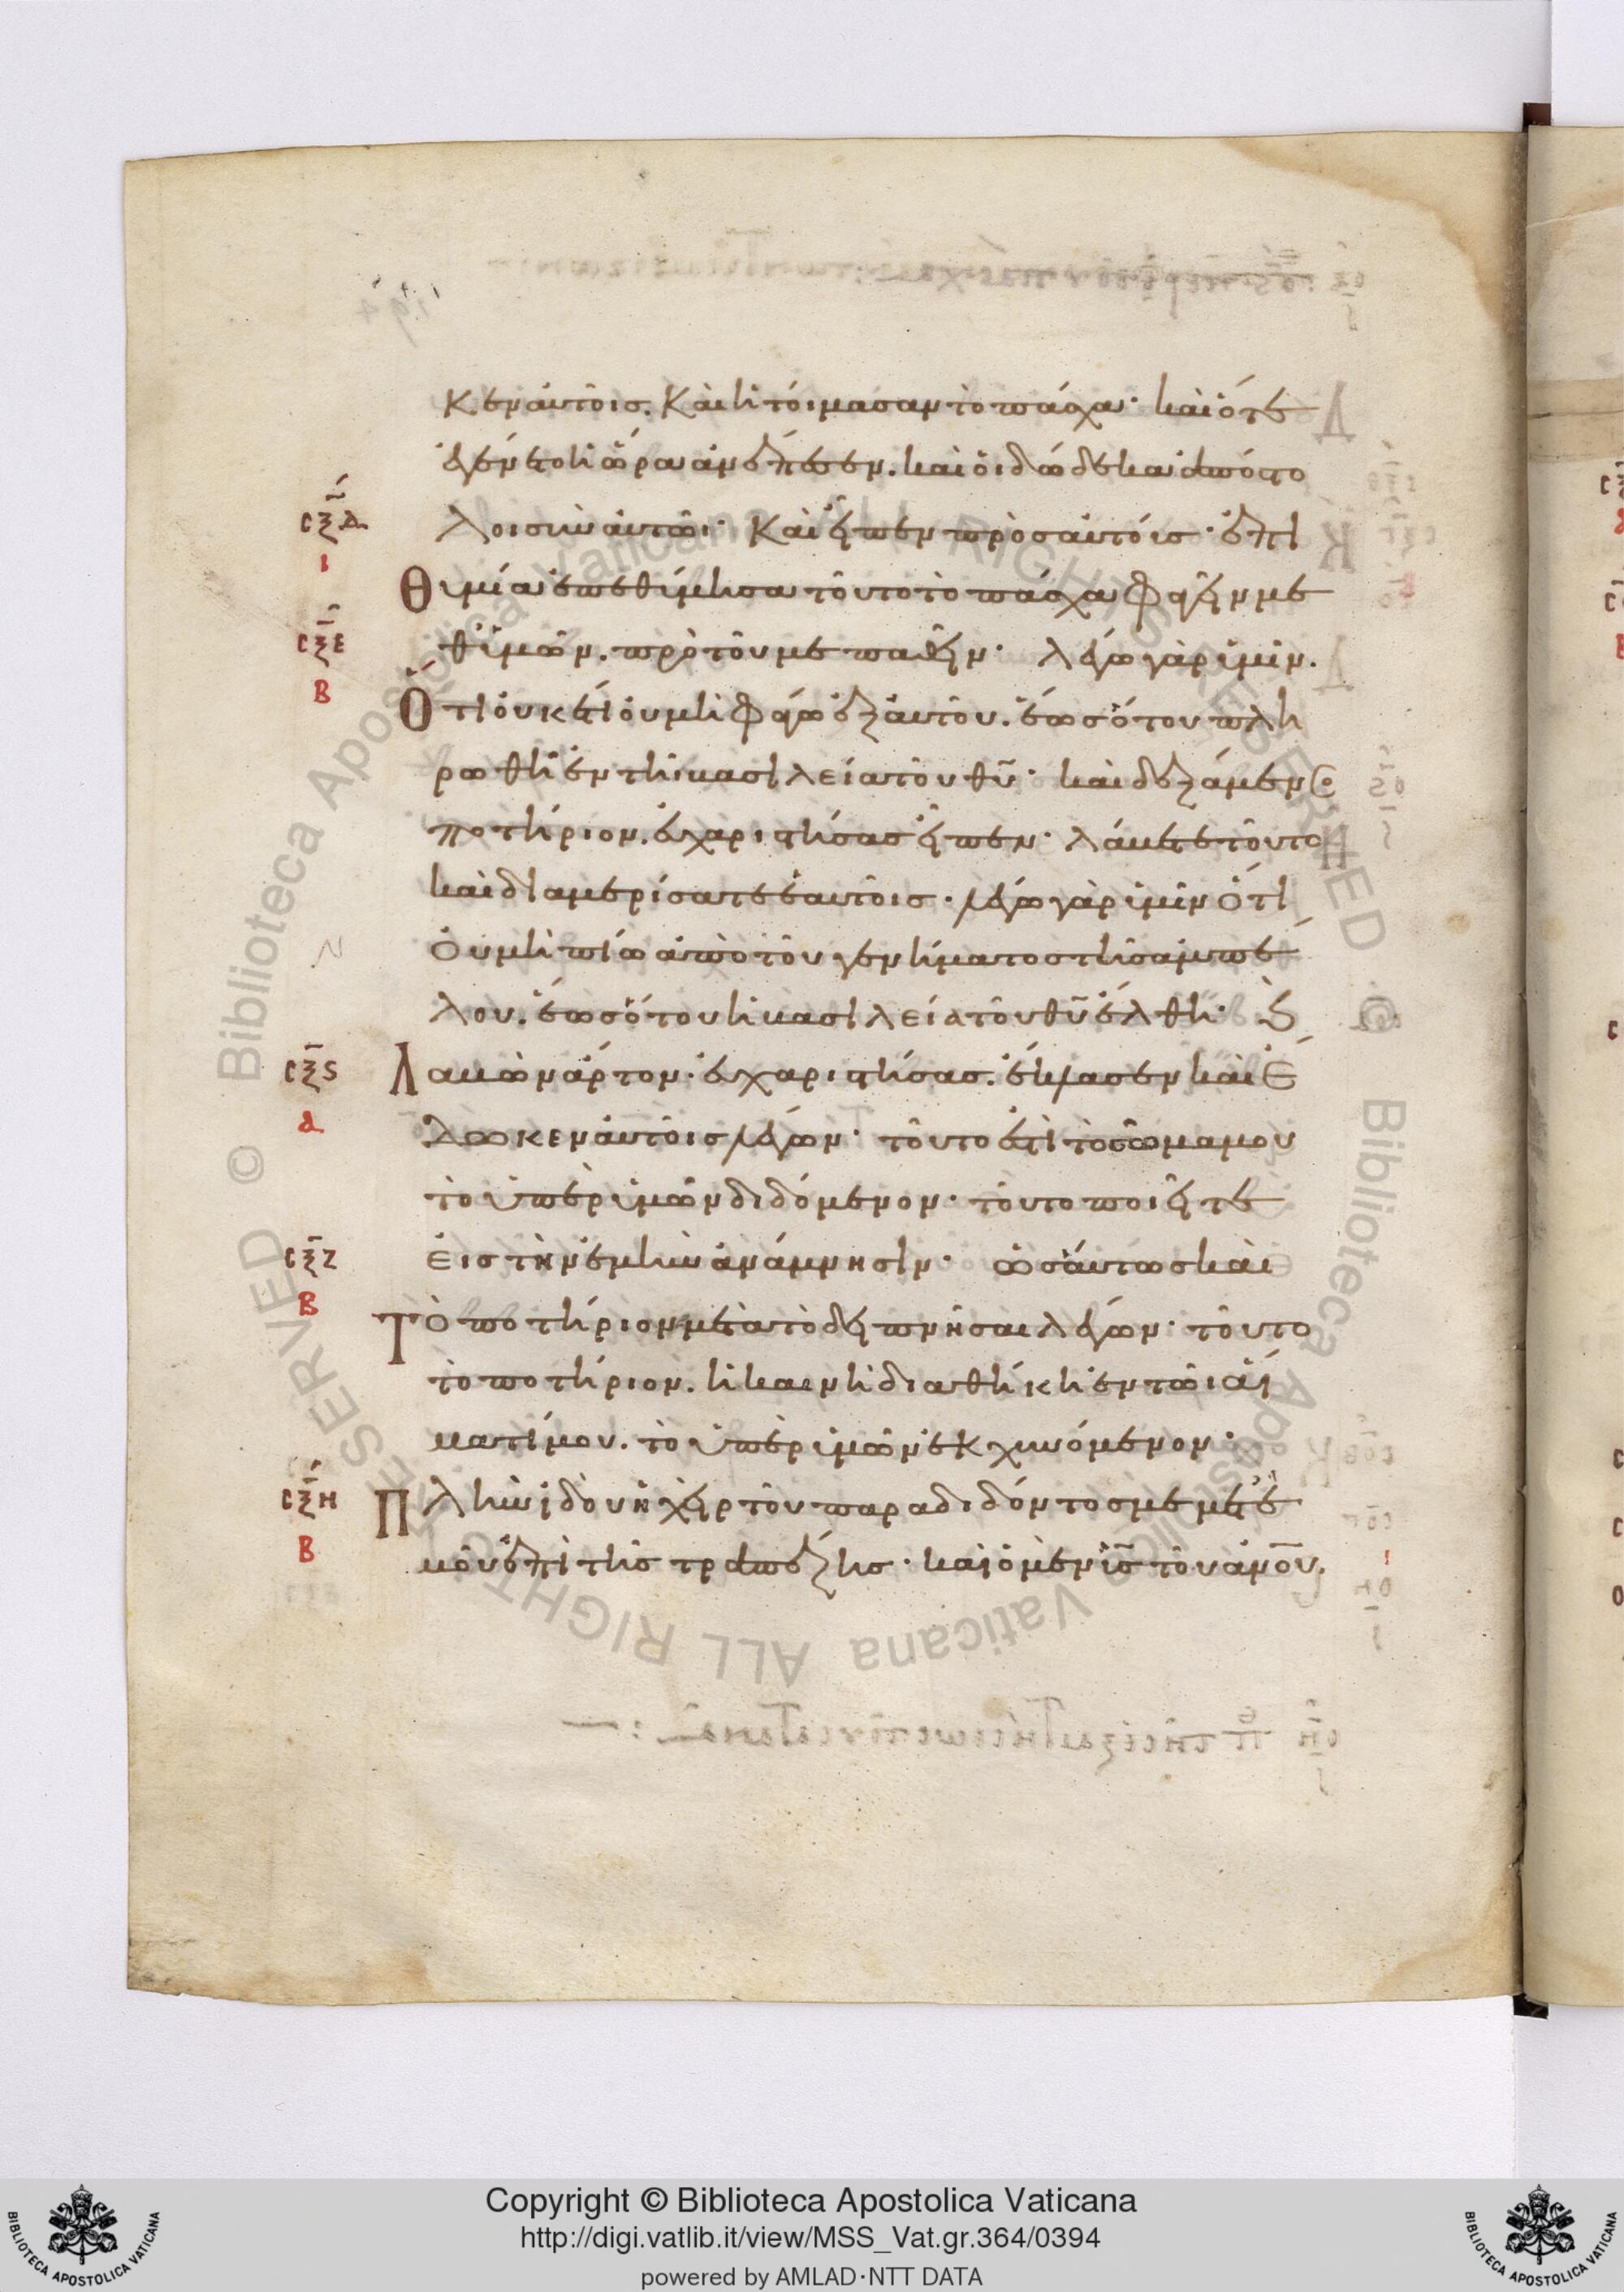 κεν αὐτοῖς. Καὶ ἡτοίμασαν τὸ πάσχα· καὶ ὅτε
ἐγένετο ἡ ὥρα ἀνέπεσεν. καὶ οἱ δώδεκα ἀπόστο
λοι σὺν αὐτῶι· Καὶ εἶπεν πρὸς αὐτούς· ἐπι
σξδ
ι
Θυμία ἐπεθύμησα τοῦτο τὸ πάσχα φαγεῖν με
σξε
θ' ὑμῶν. πρὸ τοῦ με παθεῖν· λέγω γὰρ ὑμῖν.
β
Ὅτι οὐκέτι οὐ μὴ φάγω ἐξ αὐτοῦ. ἕως ὅτου πλη
ρωθῆ ἐν τῆ βασιλεία τοῦ θυ̅· καὶ δεξάμενος
ποτήριον. εὐχαριστήσας εἶπεν· λάβετε τοῦτο
καὶ διαμερίσατε ἑαυτοῖς· λέγω γὰρ ὑμῖν ὅτι
οὐ μὴ πίω ἀπὸ τοῦ γενήματος τῆς ἀμπέ
λου. ἕως ὅτου ἡ βασιλεία τοῦ θυ̅ ἔλθη· Καὶ
σξς
Λαβὼν ἄρτον· εὐχαριστήσας. ἔκλασεν καὶ ἔ
α
δωκεν αὐτοῖς λέγων· τοῦτό ἐστι τὸ σῶμά μου
τὸ ὑπὲρ ὑμῶν διδόμενον· τοῦτο ποιεῖτε
σξζ
εἰς τὴν ἐμὴν ἀνάμνησιν· ὡσαύτως καὶ
β
Τὸ ποτήριον μετὰ τὸ δειπνῆσαι λέγων· τοῦτο
τὸ ποτήριον. ἡ καινὴ διαθήκη ἐν τῶι αἵ
ματί μου. τὸ ὑπὲρ ὑμῶν ἐκχυνόμενον·
σξη
Πλὴν ἰδοὺ ἡ χεὶρ τοῦ παραδιδόντος με μετ' ἐ
β
μοῦ ἐπὶ τῆς τραπέζης· καὶ ὁ μὲν υἱς̅ τοῦ ἀνο̅υ.
Copyright © Biblioteca Apostolica Vaticana
http://digi.vatlib.it/view/MSS_Vat.gr.364/0394
powered by AMLAD·NTT DATA
BIBLIOTECA APOSTOLICA VATICANA
BIBLIOTECA APOSTOLICA VATICANA
© Biblioteca Apostolica Vaticana ALL RIGHTS RESERVED
© Biblioteca Apostolica Vaticana ALL RIGHTS RESERVED